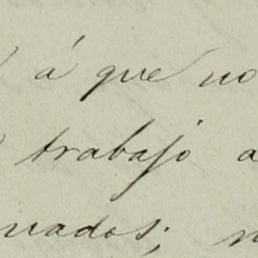 á que no
trabajo a
uados;